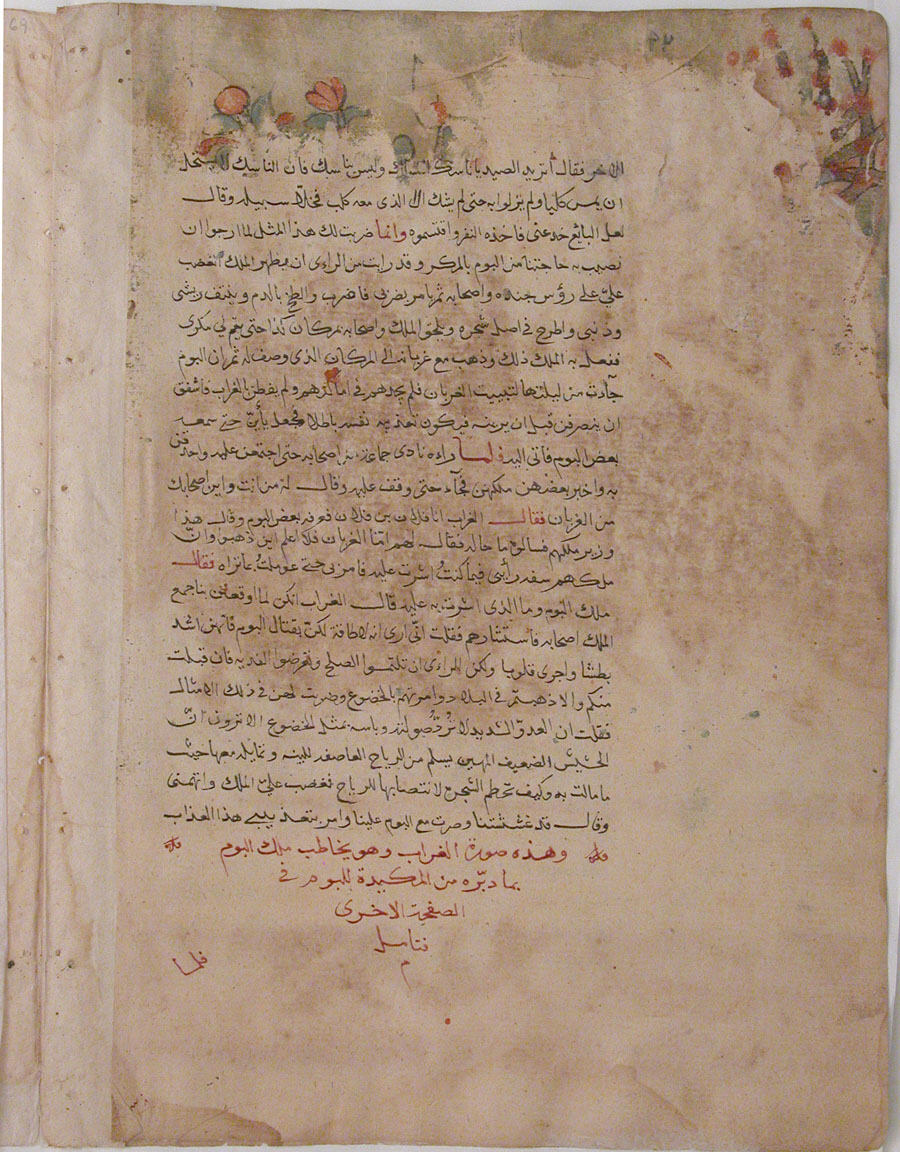 الآخر فقال أتريد الصيد يا ناسك وليس بناسك فان الناسك لا يستحل
ان يمس كلبا ولم يزلوا به حتى لم يشك ان الذى معه كلب فخلا سبيله وقال
لعل البائع خدعنى فاخذه النفر واقتسموه وانما ضربت لك هذا المثل لما ارجوا ان
نصيب به حاجتنا من البوم بالمكر وقد رايت من الراءى ان يظهر الملك الغضب
علىّ على رؤس جنده واصحابه ثم يامر بضربى فاضرب والطخ بالدم وينتف ريشى
وذنبى واطرح فى اصل شجره ويلحق الملك واصحابه بمكان كذا حتى يتم لى مكرى
ففعل به الملك ذلك وذهب مع غربانه الى المكان الذى وصف له ثم ان البوم
جآدت من ليلتها لتبييت الغربان فلم يجدهم فى اماكنهم ولم يفطن الغراب فاشفق
ان ينصرفن قبل ان يرينه فيكون تعذيبه نفسه باطلا فجعل يأنّ حتى سمعه
بعض البوم فاتى اليه فلما راه نادى جماعة من اصحابه حتى اجتمعن عليه واحدقن
به واخبر بعضهن ملكهن فجآء حتى وقف عليه وقال له من انت واين اصحابك
من الغربان فقال الغراب انا فلان بن فلان فعرفه بعض البوم وقال هذا
وزير ملكهم فسالوه ما حاله فقال لهم امّا الغربان فلا اعلم اين ذهبوا وانّ
ملكهم سفه رأيى فيما كنت اشرت عليه فامر بى حتى عوملت بما تراه فقال
ملك البوم وما الذى اشرت به عليه قال الغراب انكن لما اوقعتن بنا جمع
الملك اصحابه فاستشارهم فقلت انّى ارى انه لا طاقة لكن بقتال البوم فانهن اشد
بطشا واجرى قلوبا ولكن الراءى ان تلتمسوا الصلح وتعرضوا الفديه فان قبلت
منكم والا ذهبتم فى البلاد وامرتهم بالخضوع وضربت لهن فى ذلك الامثال
فقلت ان العدوّ الشديد لا تُردّ صولته وباسه بمثل الخضوع الا ترون انّ
الحشيش الضعيف المهين يسلم من الرياح العاصفه للينه وتمايله معها حيث
ما مالت به وكيف تحطم الشجره لانتصابها للرياح فغضب علىّ الملك واتهمنى
وقال قد غششتنا وصرت مع البوم علينا وامر بتعذيبى هذا العذاب
وهذه صورة الغراب وهو يخاطب ملك البوم
بما دبّره من المكيدة للبوم فى
الصفحة الاخرى
فتامل
م
فلما